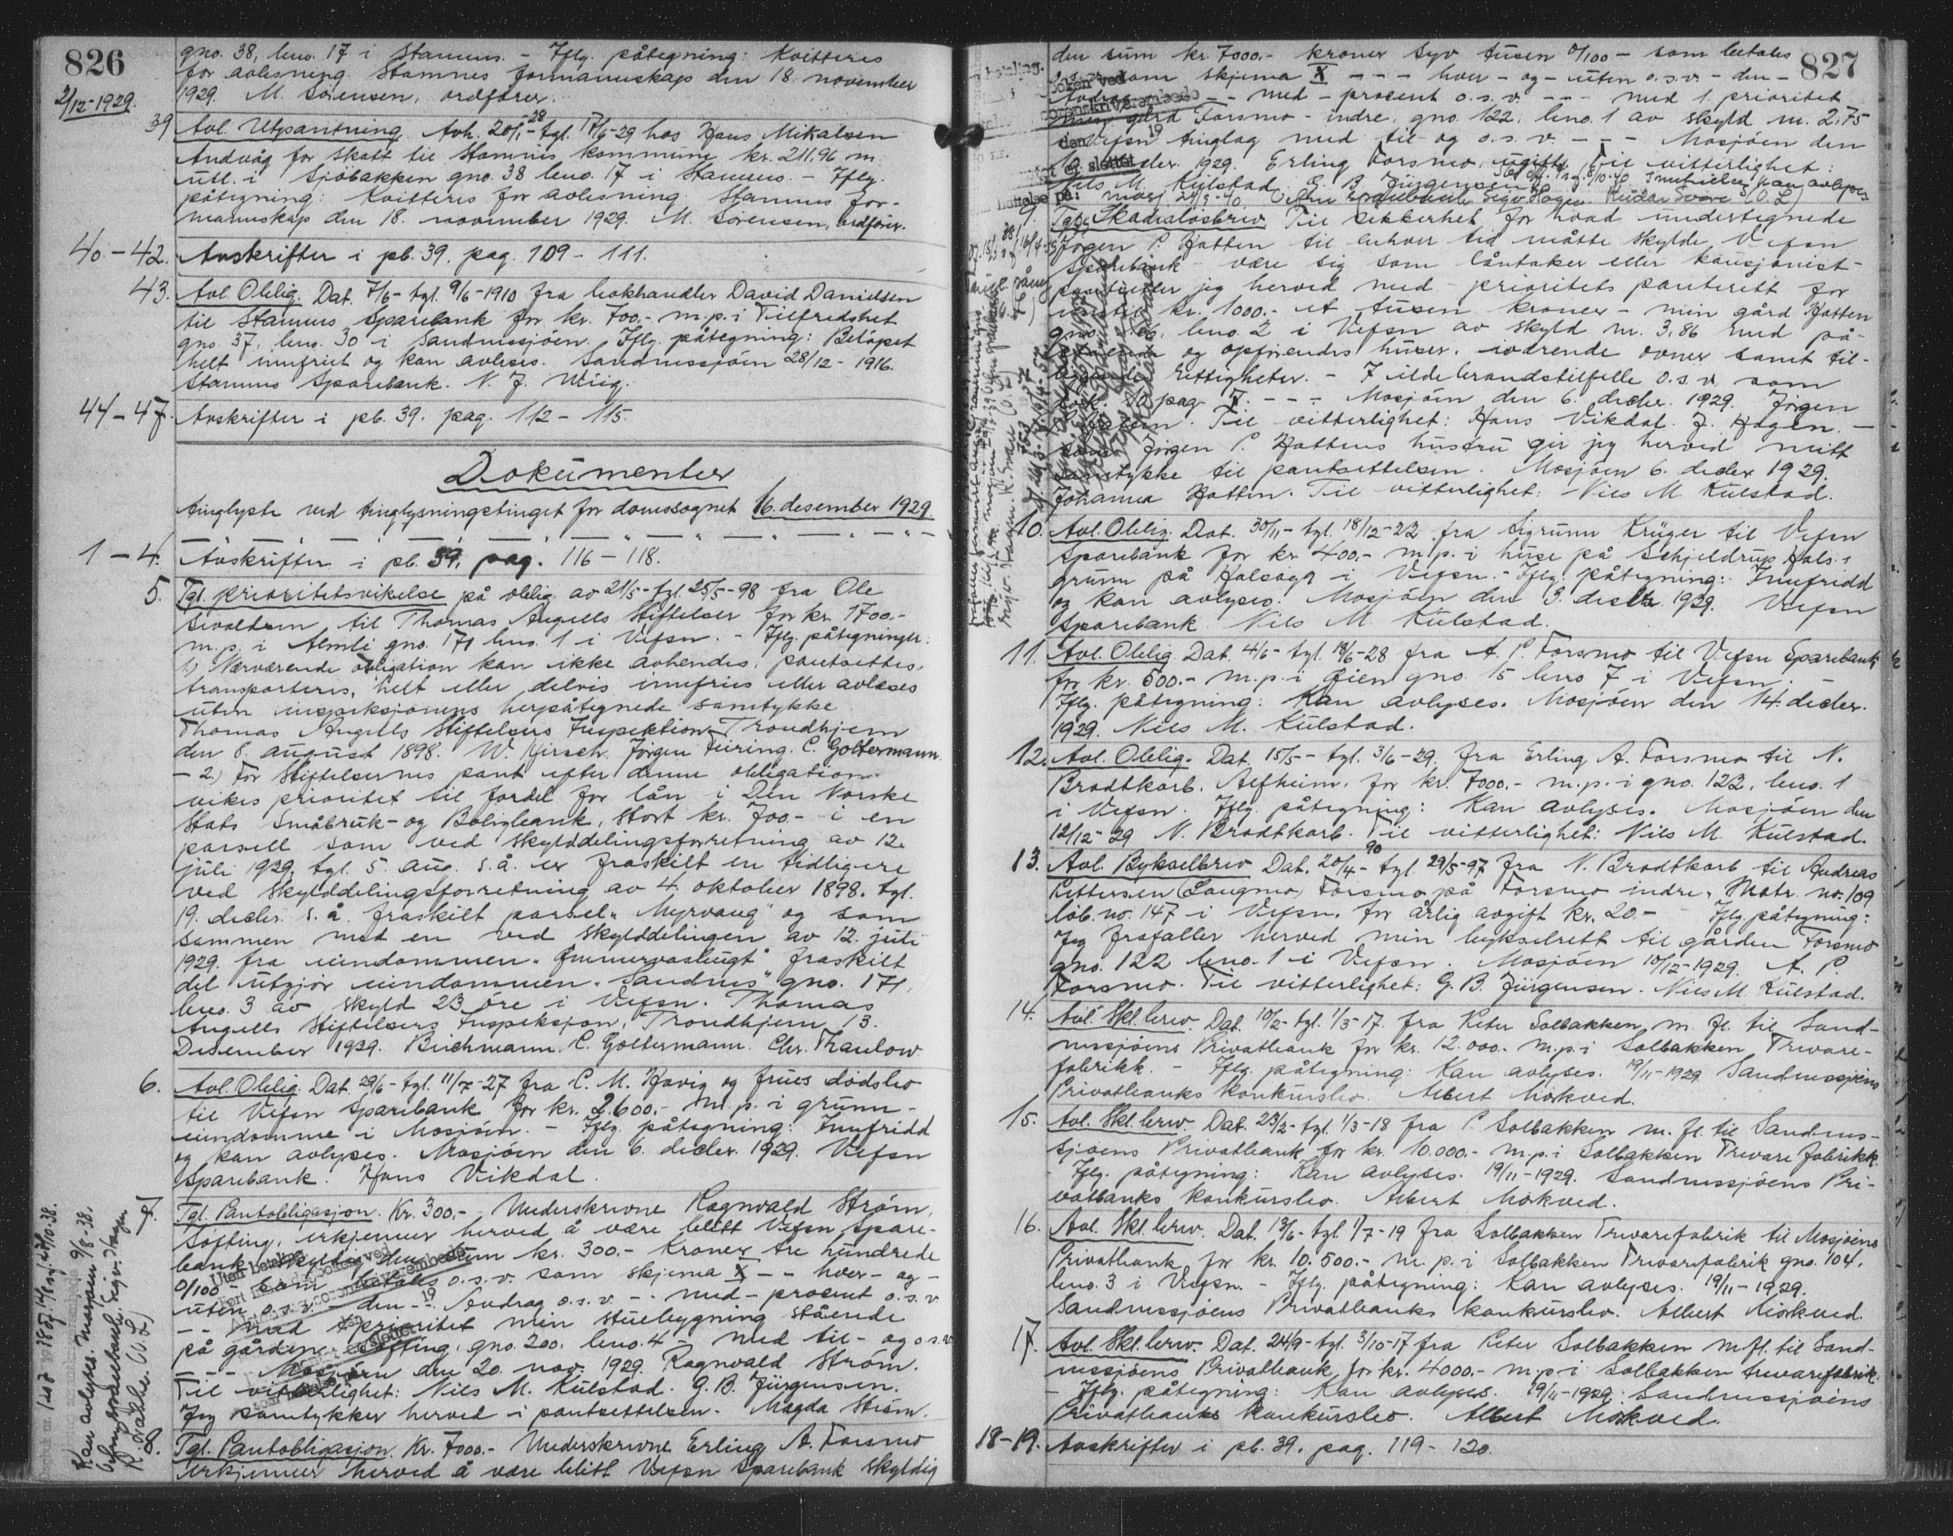 826
2/12-1929.
gno. 38, bno. 17 i Stamnes. - Iflg. påtegning: Kvitteres
for avløsning. Stamnes formannskap den 18. november
1929. M. Sørensen, ordfører.
39 Avl. Utpantning. Avh. 20/1-28 tgl. 17/6-29 hos Hans Mikalsen
Andvåg for skatt til Stamnes kommune kr. 211.96 m.
utl. i Sjøbakken gno. 38 bno. 17 i Stamnes. - Iflg.
påtegning: Kvitteres for avløsning Stamnes for-
mannskap den 18. november 1929. M. Sørensen, ordfører.
40-42. Avskrifter i pb. 39. pag. 109 - 111.
43. Avl. Oblig. Dat. 7/6- tgl. 9/6-1910 fra bokhandler David Danielsen
til Stamnes Sparebank for kr. 700.- m.p. i Tilfredshet
gno. 37, bno. 30 i Sandnessjøen. Iflg. påtegning: Beløpet
helt innfriet og kan avlyses. Sandnessjøen 28/12-1916.
Stamnes Sparebank. N. J. Wiig.
44-47. Avskrifter i pb. 39. pag. 112 - 115.
Dokumenter
tinglyste ved tinglysningstinget for domssognet 16. desember 1929
1-4. Avskrifter i pb. 39. pag. 116 - 118.
5. Tgl. prioritetsvikelse på oblig. av 21/5- tgl. 25/5-98 fra Ole
Sivaldsen til Thomas Angells Stiftelser for kr. 1700.-
m.p. i Almli gno. 171 bno. 1 i Vefsn. - Iflg. påtegninger:
1) Nærværende obligation kan ikke avhendes, pantsettes,
transporteres, helt eller delvis innfries eller avlæses
uten inspeksjonens herpåtegnede samtykke
Thomas Angells Stiftelsers Inspektion Trondhjem
den 8. august 1898. W. Hirsch. Jørgen Feiring. C. Goltermann.
- 2) For Stiftelsernes pant efter denne obligation
vikes prioritet til fordel for lån i Den Norske
Stats Småbruk- og Boligbank, stort kr. 700.- i en
parsell som ved skylddelingsforretning av 12.
juli 1929. tgl. 5. aug. s.å. er fraskilt en tidligere
ved skylddelingsforretning av 4. oktober 1898. tgl.
19. decbr. s.å. fraskilt parsel "Myrvang" og som
sammen med en ved skylddelingen av 12. juli
1929. fra eiendommen fraskilt
del utgjør eiendommen "Sandnes" gno. 171,
bno. 3 av skyld 23 øre i Vefsn. Thomas
Angells Stiftelsers Inspeksjon, Trondhjem 13.
Desember 1929. Buchmann. C. Goltermann. Chr. Thaulow
6. Avl. Oblig. Dat. 29/6- tgl. 11/7-27 fra C. M. Havig og frues dødsbo
til Vefsn Sparebank for kr. 2.600.- m.p. i grunn-
eiendomme i Mosjøen. - Iflg. påtegning: Innfridd
og kan avlyses. Mosjøen den 6. decbr. 1929. Vefsn
Sparebank. Hans Vikdal.
7. Tgl. Pantobligasjon. Kr. 300.- Underskrevne Ragnvald Strøm,
Softing, erkjenner herved å være blitt Vefsn Spare-
bank skyldig den sum kr. 300.- kroner tre hundrede
0/100 - som betales o.s.v. som skjema X - - hver- og -
uten o.s.v. - den - - Avdrag o.s.v. - - med - procent o.s.v
- - med 1 prioritet min stuebygning stående
på gården Softing, gno. 200. bno. 4 - med til- og o.s.v.
- - - Mosjøen den 20. nov. 1929. Ragnvald Strøm.
Til vitterlighet: Nils M. Kulstad. G. B. Jürgensen.
Jeg samtykker herved i pantsettelsen. Magda Strøm.
8. Tgl. Pantobligasjon. Kr. 7000.- Underskrevne Erling A. Forsmo
erkjenner herved å være blitt Vefsn Sparebank skyldig
Kan avlyses. Mosjøen 9/8-38.
827
den sum kr. 7000.- kroner syv tusen 0/100 - som betales
o.s.v. som skjema X - - - hver - og - uten o.s.v. - den -
Avdrag - - - med - procent o.s.v. - - - med 1. prioritet
min gård Forsmo - indre, gno. 122, bno. 1 av skyld m. 2.75
i Vefsn tinglag med til og o.s.v. - - - Mosjøen den
decbr. 1929. Erling Forsmo, ugift. Til vitterlighet:
Nils M. Kulstad. G. B. Jürgensen.
9. Tgl. Skadesløsbrev. Til sikkerhet for hvad undertegnede
Jørgen P. Hatten til enhver tid måtte skylde Vefsn
Sparebank - være sig som låntaker eller kausjonist -
pantsetter jeg herved med - prioritets panterett for
inntil kr. 1000.- et tusen kroner - min gård Hatten
gno. bno. 2 i Vefsn av skyld m. 3,86 med på-
stående og opførendes huser, iværende ovner samt til-
liggende rettigheter. - I ildebrandstilfelle o.s.v. som
pag. - - - Mosjøen den 6. decbr. 1929. Jørgen
Hatten. Til vitterlighet: Hans Vikdal. J. Hagen. -
Som Jørgen P. Hattens hustru gir jeg herved mitt
samtykke til pantsettelsen. Mosjøen 6. decbr 1929.
Johanna Hatten. Til vitterlighet: Nils M. Kulstad.
10. Avl. Oblig. Dat. 30/11- tgl. 18/12-22 fra Sigrunn Krüger til Vefsn
Sparebank for kr. 400.- m.p. i huse på Schjeldrups Hals.
grunn på Halsøya i Vefsn. - Iflg. påtegning: Innfridd
og kan avlyses. Mosjøen den 3. decbr. 1929. Vefsn
Sparebank. Nils M. Kulstad.
11. Avl. Oblig. Dat. 4/6- tgl. 18/6-28 fra A. P. Forsmo til Vefsn Sparebank
for kr. 500.- m.p. i Øien gno. 15 bno 7 i Vefsn. -
Iflg. påtegning: Kan avlyses. Mosjøen den 14. decbr.
1929. Nils M. Kulstad.
12. Avl. Oblig. Dat. 15/5- tgl. 3/6-29. fra Erling A. Forsmo til N.
Brodtkorb, for kr. 7000.- m.p. i gno. 122, bno. 1
i Vefsn. Iflg. påtegning: Kan avlyses. Mosjøen den
12/12-29 N. Brodtkorb. Til vitterlighet: Nils M. Kulstad.
13. Avl. Bykselbrev Dat. 20/4-90 tgl 29/5-97 fra N. Brodtkorb til Andreas
Pettersen (Langmo) Forsmo på Forsmo indre, Matr. no. 109
løb. no. 147 i Vefsn. for årlig avgift kr. 20.- Iflg. påtegning:
Jeg frafaller herved min bykselrett til gården Forsmo
gno. 122 bno. 1 i Vefsn. Mosjøen 10/12-1929. A. P.
Forsmo. Til vitterlighet: G. B. Jürgensen. Nils M. Kulstad.
14. Avl. Skl. brev. Dat. 10/2- tgl. 1/3-17. fra Peter Solbakken m. fl. til Sand-
nessjøens Privatbank for kr. 12.000.- m.p. i Solbakken Trevare-
fabrikk. - Iflg. påtegning: Kan avlyses. 19/11-1929. Sandnessjøens
Privatbanks konkursbo. Albert Mokved.
15. Avl. Skl. brev. Dat. 23/2- tgl. 1/3-18 fra P. Solbakken m. fl. til Sandnes-
sjøens Privatbank for kr. 10.000.- m.p. i Solbakken Trevarefabrikk.
- Iflg. påtegning: Kan avlyses. 19/11-1929. Sandnessjøens Pri-
vatbanks konkursbo. Albert Mokved.
16. Avl. Skl. brev. Dat. 13/6- tgl 1/7-19 fra Solbakken Trevarefabrik til Mosjøens
Privatbank for kr. 10.500.- m.p. i Solbakken Trevarefabrik gno. 104,
bno. 3 i Vefsn. - Iflg. påtegning: Kan avlyses. 19/11-1929.
Sandnessjøens Privatbanks konkursbo. Albert Mokved.
17. Avl. Skl. brev. Dat. 24/9- tgl. 3/10-17 fra Peter Solbakken m.fl. til Sand-
nessjøens Privatbank for kr. 4000.- m.p. i Solbakken trevarefabrik.
- Iflg. påtegning: Kan avlyses. 19/11-1929. Sandnessjøens
Privatbanks konkursbo. Albert Mokved.
18-19. Avskrifter i pb. 39. pag. 119 - 120.